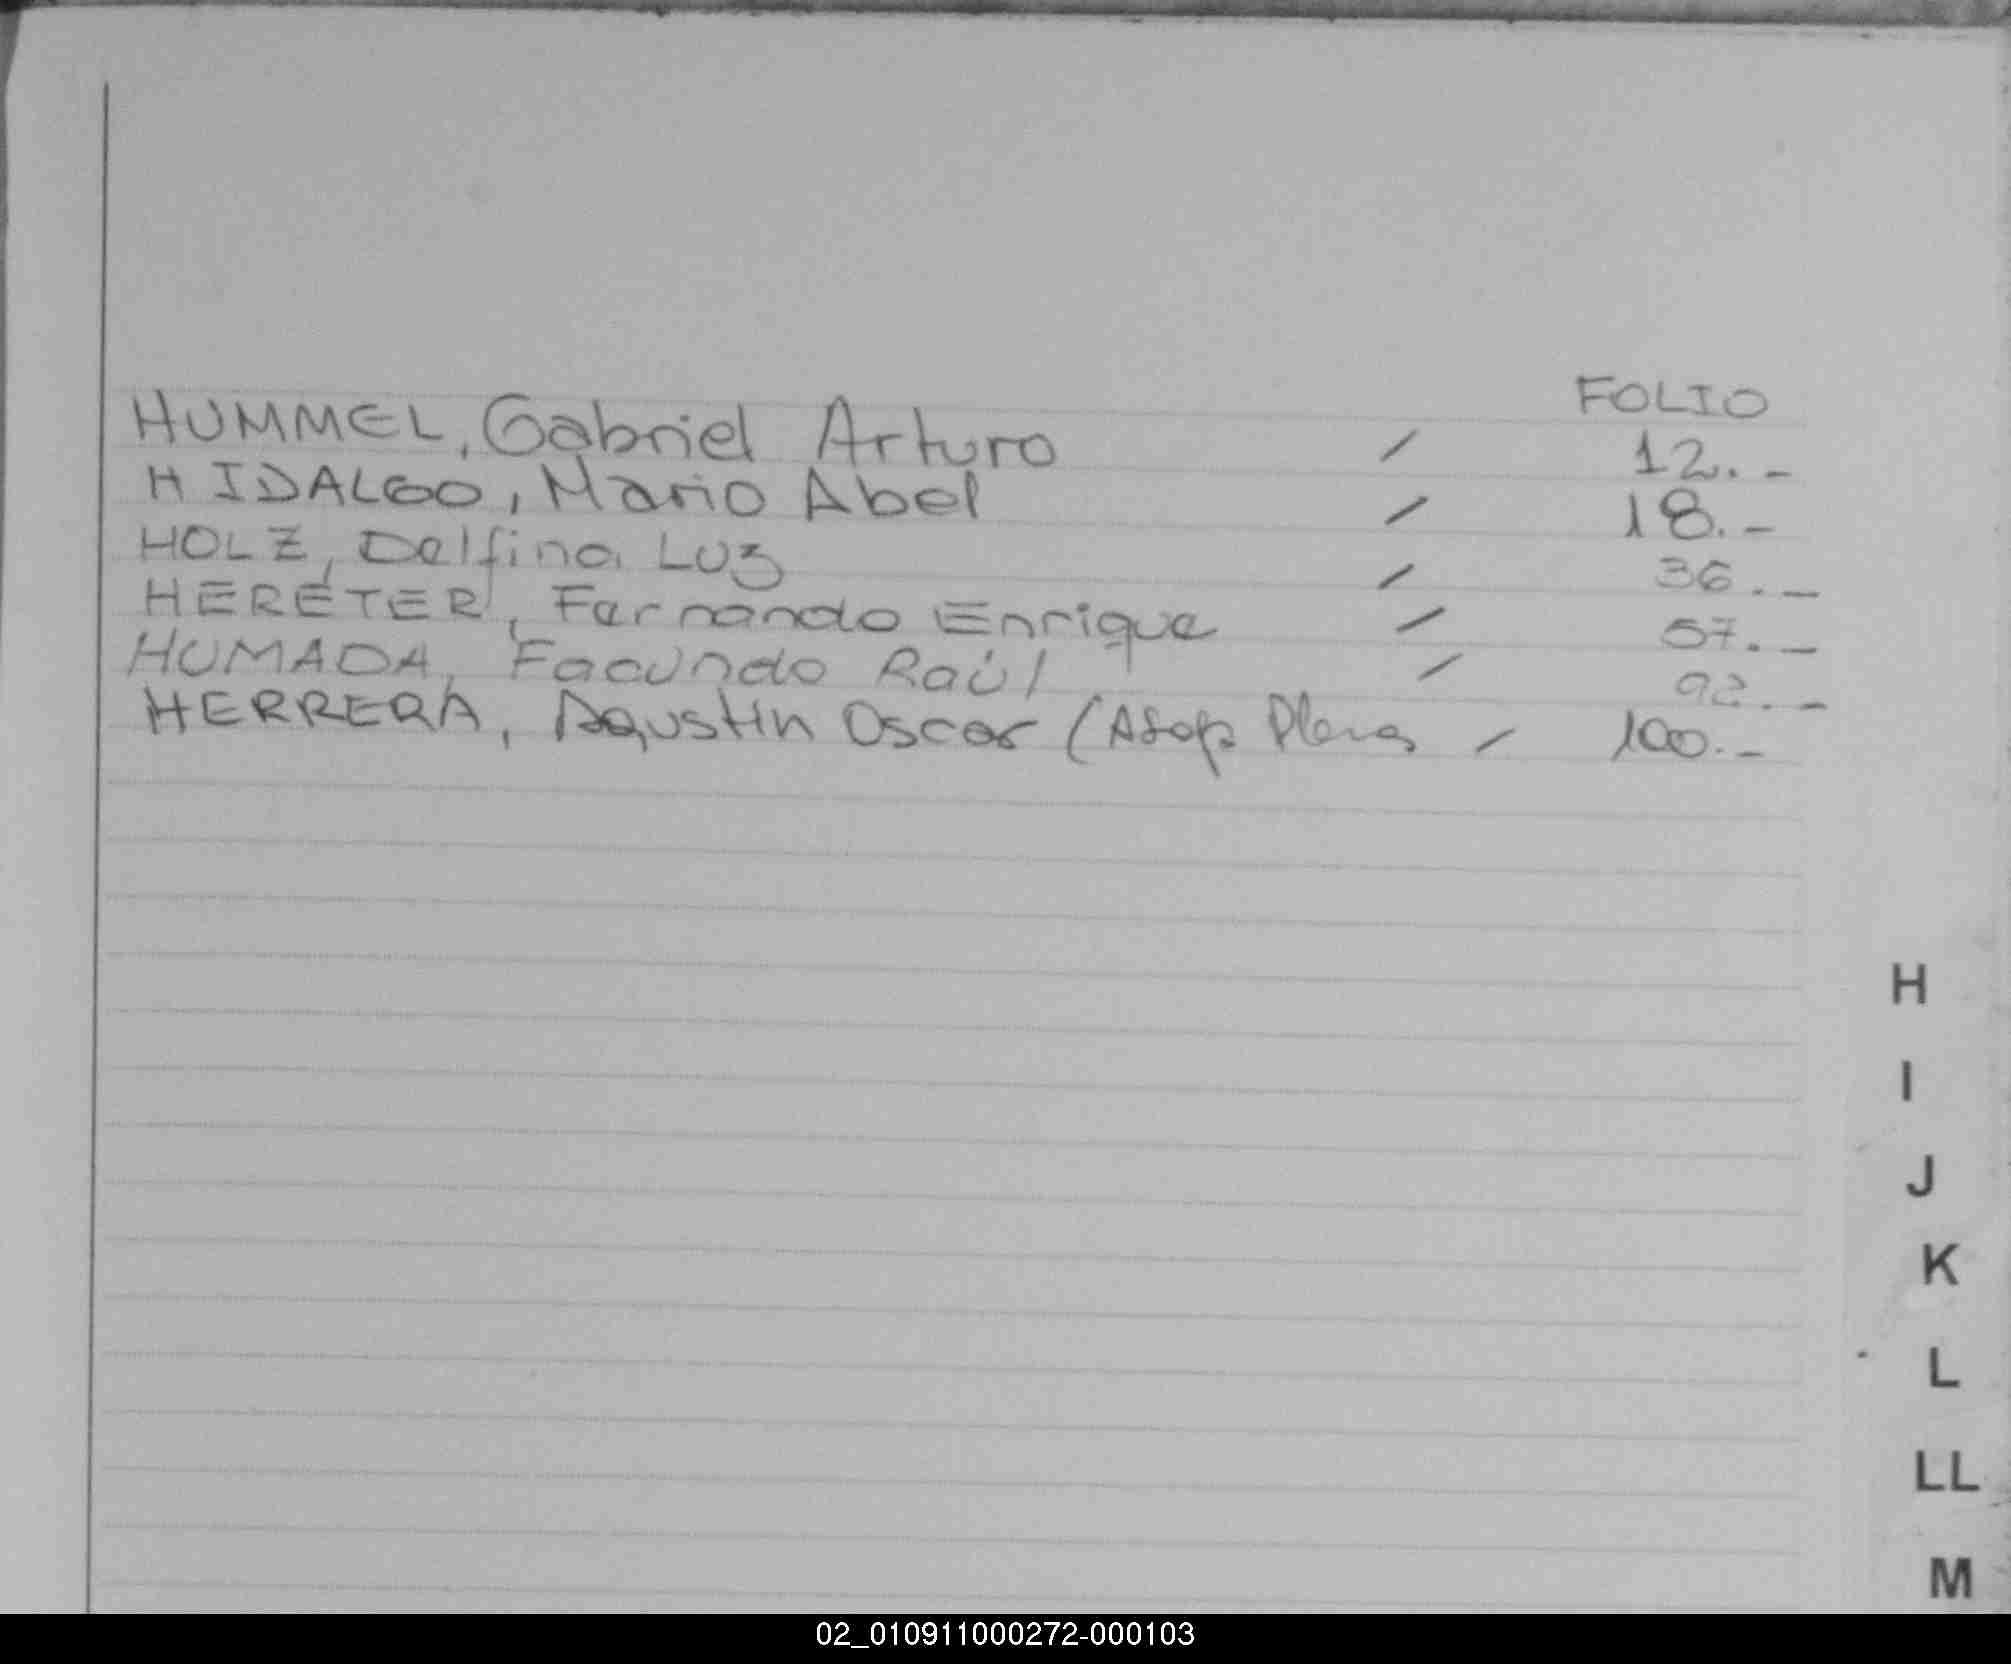 FOLIO
HUMMEL, Gabriel Arturo / 12.-
HIDALGO, Mario Abel / 18.-
HOLZ, Delfina Luz / 36.-
HERÉTER, Fernando Enrique / 57.-
HUMADA, Facundo Raúl / 92.-
HERRERA, Agustín Oscar (Adop Plena / 100.-
H
I
J
K
L
LL
M
02_010911000272-000103